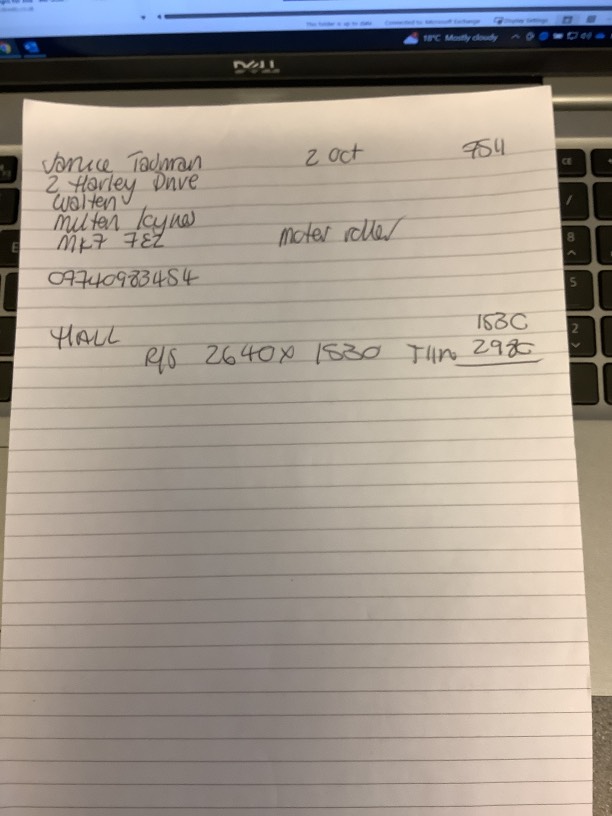 This folder is up to date Connected to: Microsoft Exchange Display Settings
18°C Mostly cloudy
DELL
Janice Tadman 2 Oct 754
2 Harley Drive
Walten
Milten Keynes
MK7 7EZ Moter roller
09740983454
HALL 153C
R/S 2640 x 1530 298C